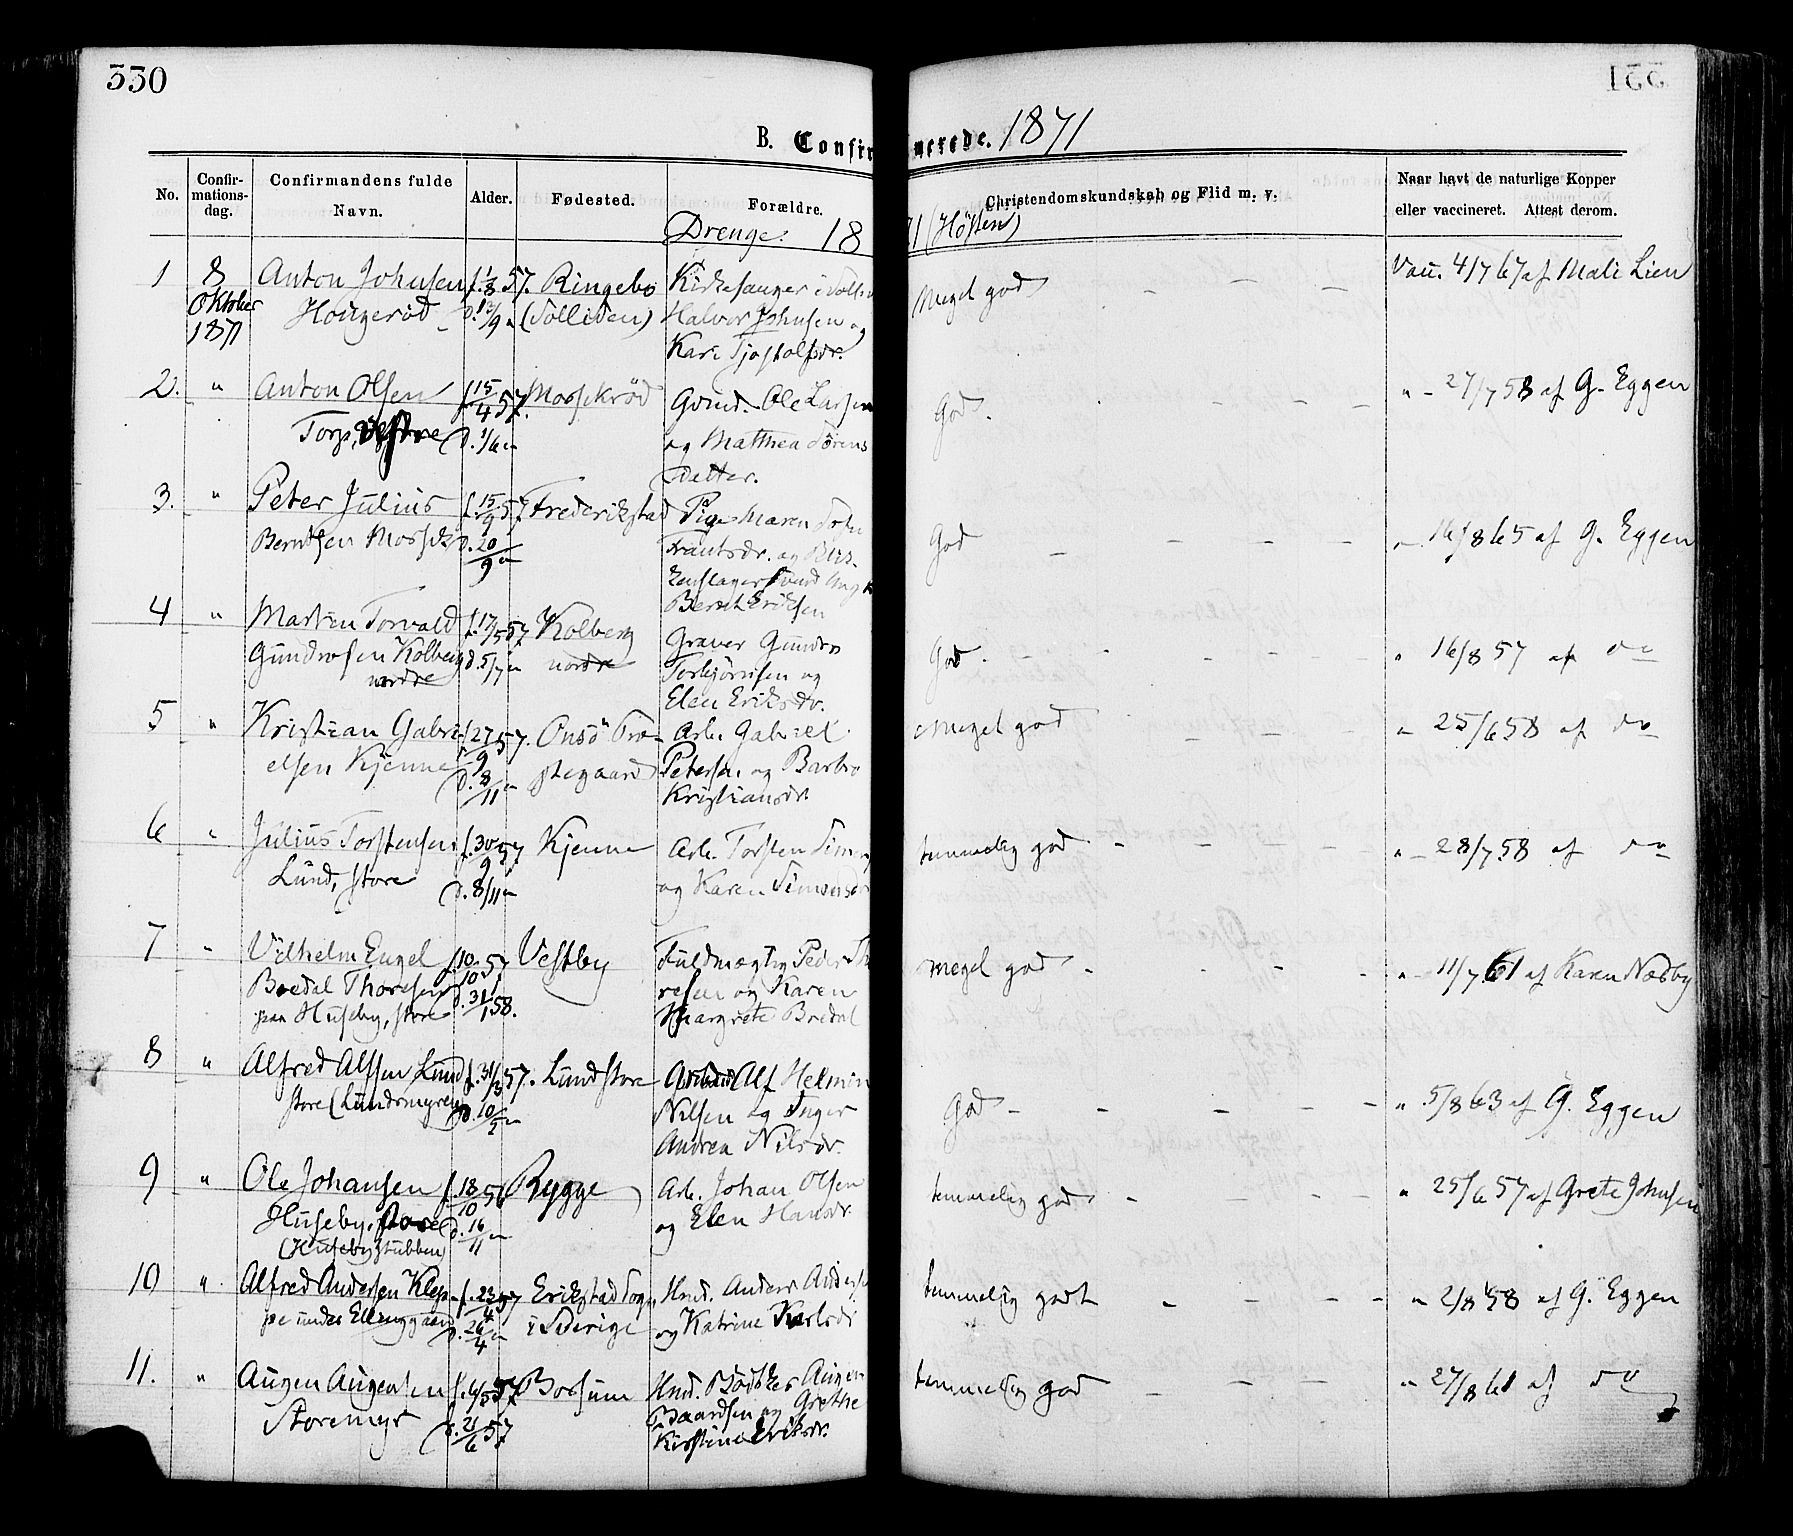 330
331
B. Confirmerede. 1871
No.
Confir-
mations-
dag.
Confirmandens fulde
Navn.
Alder.
Fødested.
Forældre.
Christendomskundskab og Flid m. v.
Naar havt de naturlige Kopper
eller vaccineret. Attest derom.
Drenge. 1871 (Høsten)
1 8 Anton Johnsen f. 1/8 57. Ringebo Kirkesanger i Solli Meget god - - - Vacc. 4/7 67 af Mali Lien
Oktober Hougerød d. 13/9 " (Solliden) Halvor Johnsen og
1871 Kari Tjøstolfsdr.
2. " Anton Olsen f. 15/4 57. Mosskrød Gbrd. Ole Larsen God. - - - " - 27/7 58 af G. Eggen
Torp, d. 1/6 " og Mathea Sørens
datter.
3. " Peter Julius f. 15/9 57 Frederikstad Pige Maren Sofie God - - - - " - 16/8 65 af G. Eggen
Berntsen Moss d. 20/9 " Frantsdr. og
Bernt Eriksen
4 " Martin Torvald f. 17/5 57 Kolberg Graver Gunder God. - - - - " 16/8 57 af do
Gundersen Kolberg d. 5/7 " nordre Torbjørnsen og
nordre Elen Eriksdr.
5 " Kristian Gabri- f. 27/9 57. Onsö Præ- Arb. Gabriel Meget god - - - " - 25/6 58 af do
elsen Kjenne d. 8/11 " stegaard Petersen og Barbro
Kristiansdr.
6 " Julius Torstensen f. 30/9 57 Kjenne Arb. Torsten Simen temmelig god - - - - " - 28/7 58 af do
Lund, store d. 8/11 " og Karen Simensdr
7 " Vilhelm Engel f. 10/10 57 Vestby Fuldmægtig Peder Th meget god - - - - " - 11/7 61 af Karen Nædby
Bredal Thoresen d. 31/1 58. resen og Karen
paa Huseby, store Margrete Bredal
8 " Alfred Alfsen Lund f. 31/3 57. Lund store Alf Helmin God - - - - - " 5/8 63 af G. Eggen
store (Lundsmyren) d. 10/5 " Nilsen og Inger
Andrea Nilsdr.
9 " Ole Johansen f. 18/10 56 Rygge Arb. Johan Olsen temmelig god - - - - " 25/6 57 af Grete Johnsen
Huseby, store d. 16/11 " og Elen Hansdr.
(Husebystubben)
10 " Alfred Andersen Klep- f. 23/4 57 Erikstad Sogn Hmd. Anders Anders temmelig godt - - - - " 2/8 58 af G. Eggen
pe under Elinggaard d. 26/4 " i Sverige og Katrine Karlsdr
11. " Augen Augensen f. 6/5 57 Borsum Hmd. Bødker Augen temmelig god - - - - " - 27/8 61 af do
Storemyr d. 21/6 57 Baardsen og Grethe
Kirstine Eriksdr.